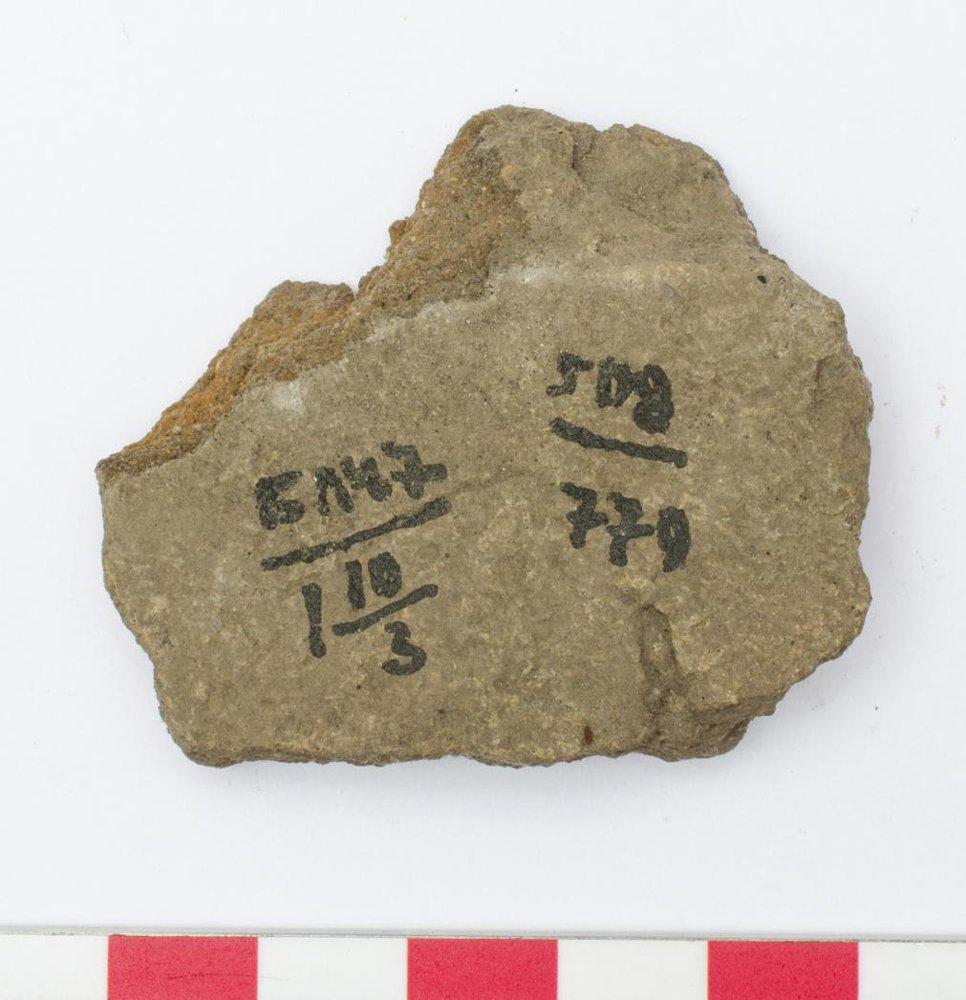 БЛ47
1 10/3
508
779